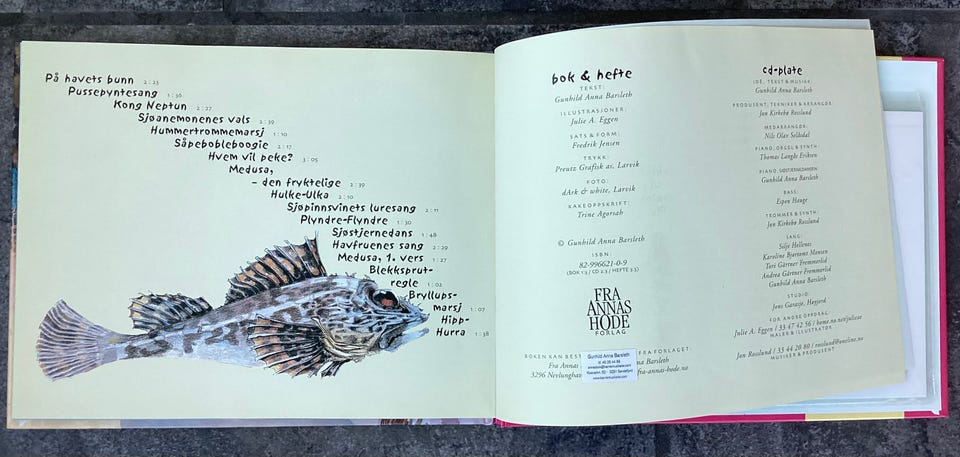 På havets bunn 2:23
Pussepyntesang 1:36
Kong Neptun 2:27
Sjøanemonenes vals 2:39
Hummertrommemarsj 1:10
Såpebobleboogie 2:17
Hvem vil peke? 3:05
Medusa,
- den fryktelige 2:39
Hulke-Ulka 2:10
Sjøpinnsvinets luresang 2:11
Plyndre-flyndre 1:30
Sjøstjernedans 1:48
Havfruenes sang 2:29
Medusa, 1. vers 1:27
Blekksprut-
regle 1:02
Bryllups-
marsj 1:07
Hipp-
Hurra 1:38
bok & hefte
TEKST:
Gunhild Anna Barsleth
ILLUSTRASJONER:
Julie A. Eggen
SATS & FORM:
Fredrik Jensen
TRYKK:
Preutz Grafisk as, Larvik
FOTO:
dArk & white, Larvik
KAKEOPPSKRIFT:
Trine Agorsah
© Gunhild Anna Barsleth
ISBN:
82-996621-0-9
(BOK 1:3 / CD 2:3 / HEFTE 3:3)
FRA
ANNAS
HODE
FORLAG
BOKEN KAN BEST FRA FORLAGET:
Fra Annas Barsleth
3296 Nevlunghavn fra-annas-hode.no
Gunhild Anna Barsleth
cd-plate
IDÉ, TEKST & MUSIKK:
Gunhild Anna Barsleth
PRODUSENT, TEKNIKER & ARRANGØR:
Jon Kirkebø Rosslund
MEDARRANGØR:
Nils Olav Solbidal
PIANO, ORGEL & SYNTH:
Thomas Langlo Eriksen
PIANO, SJØSTJERNEDANSEN:
Gunhild Anna Barsleth
BASS:
Espen Hauge
TROMMER & SYNTH:
Jon Kirkebø Rosslund
SANG:
Silje Hellenes
Karoline Bjørtomt Hansen
Tore Gärtner Frommerlid
Andrea Gärtner Frommerlid
Gunhild Anna Barsleth
STUDIO:
Jons Garasje, Høyjord
FOR ANDRE OPPDRAG:
Julie A. Eggen / 33 47 42 56 / home.no.net/juliese
MALER & ILLUSTRATØR
Jon Rosslund / 33 44 20 80 / rosslund@online.no
MUSIKER & PRODUSENT